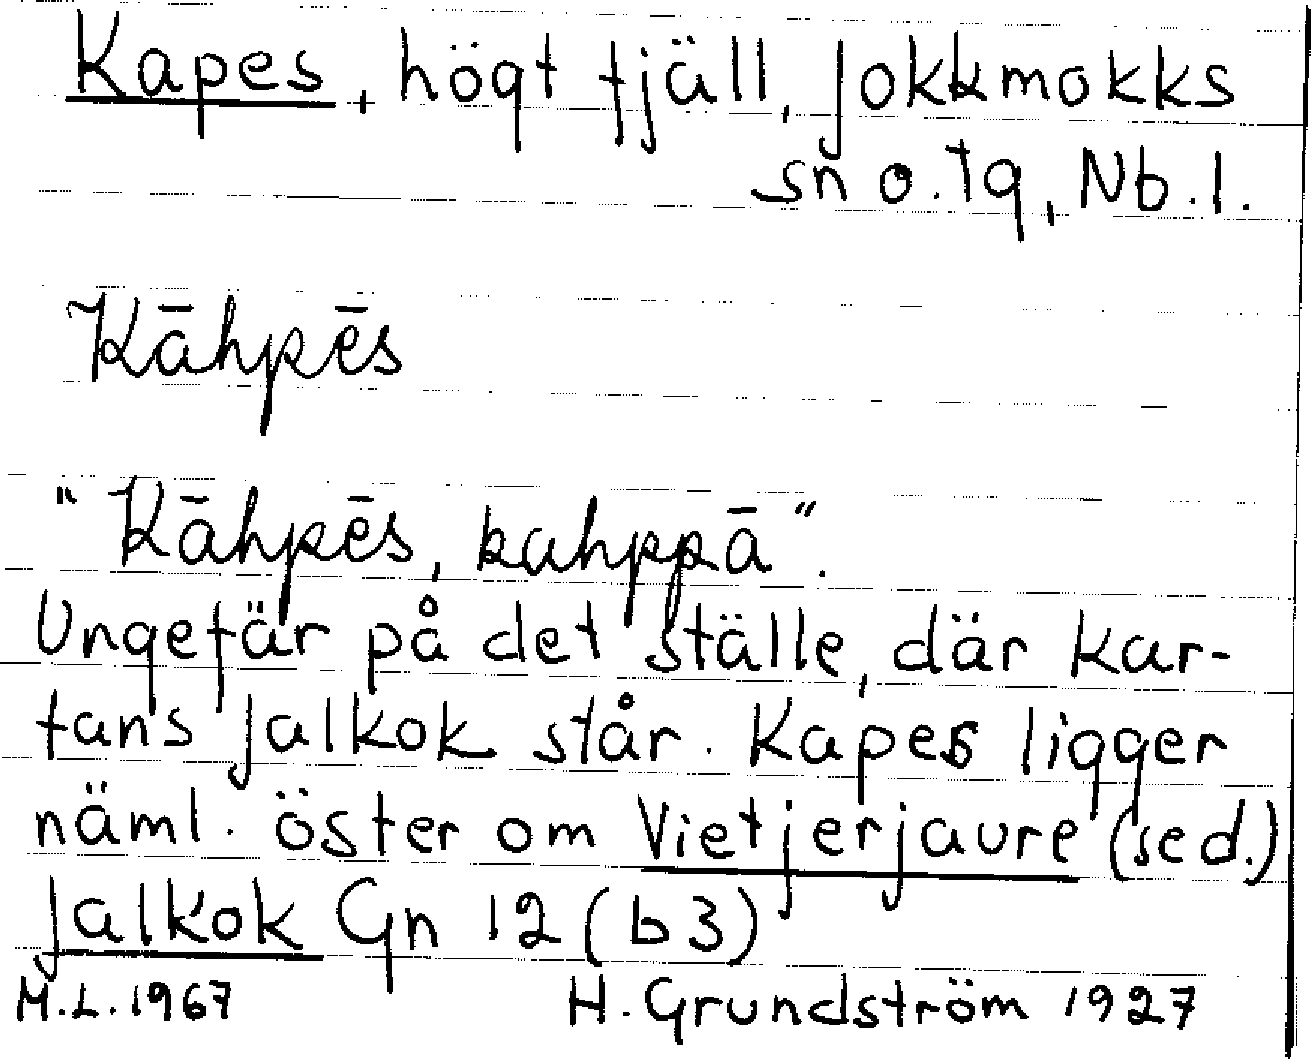 Kapes, högt fjäll, Jokkmokks
sn o. tg, Nb. l.
Kāhpēs
"Kāhpēs, kahppā".
Ungefär på det ställe, där kar-
tans Jalkok står. Kapes ligger
näml. öster om Vietjerjaure (se d.)
Jalkok Gn 12 (b3)
M.L. 1967 H. Grundström 1927